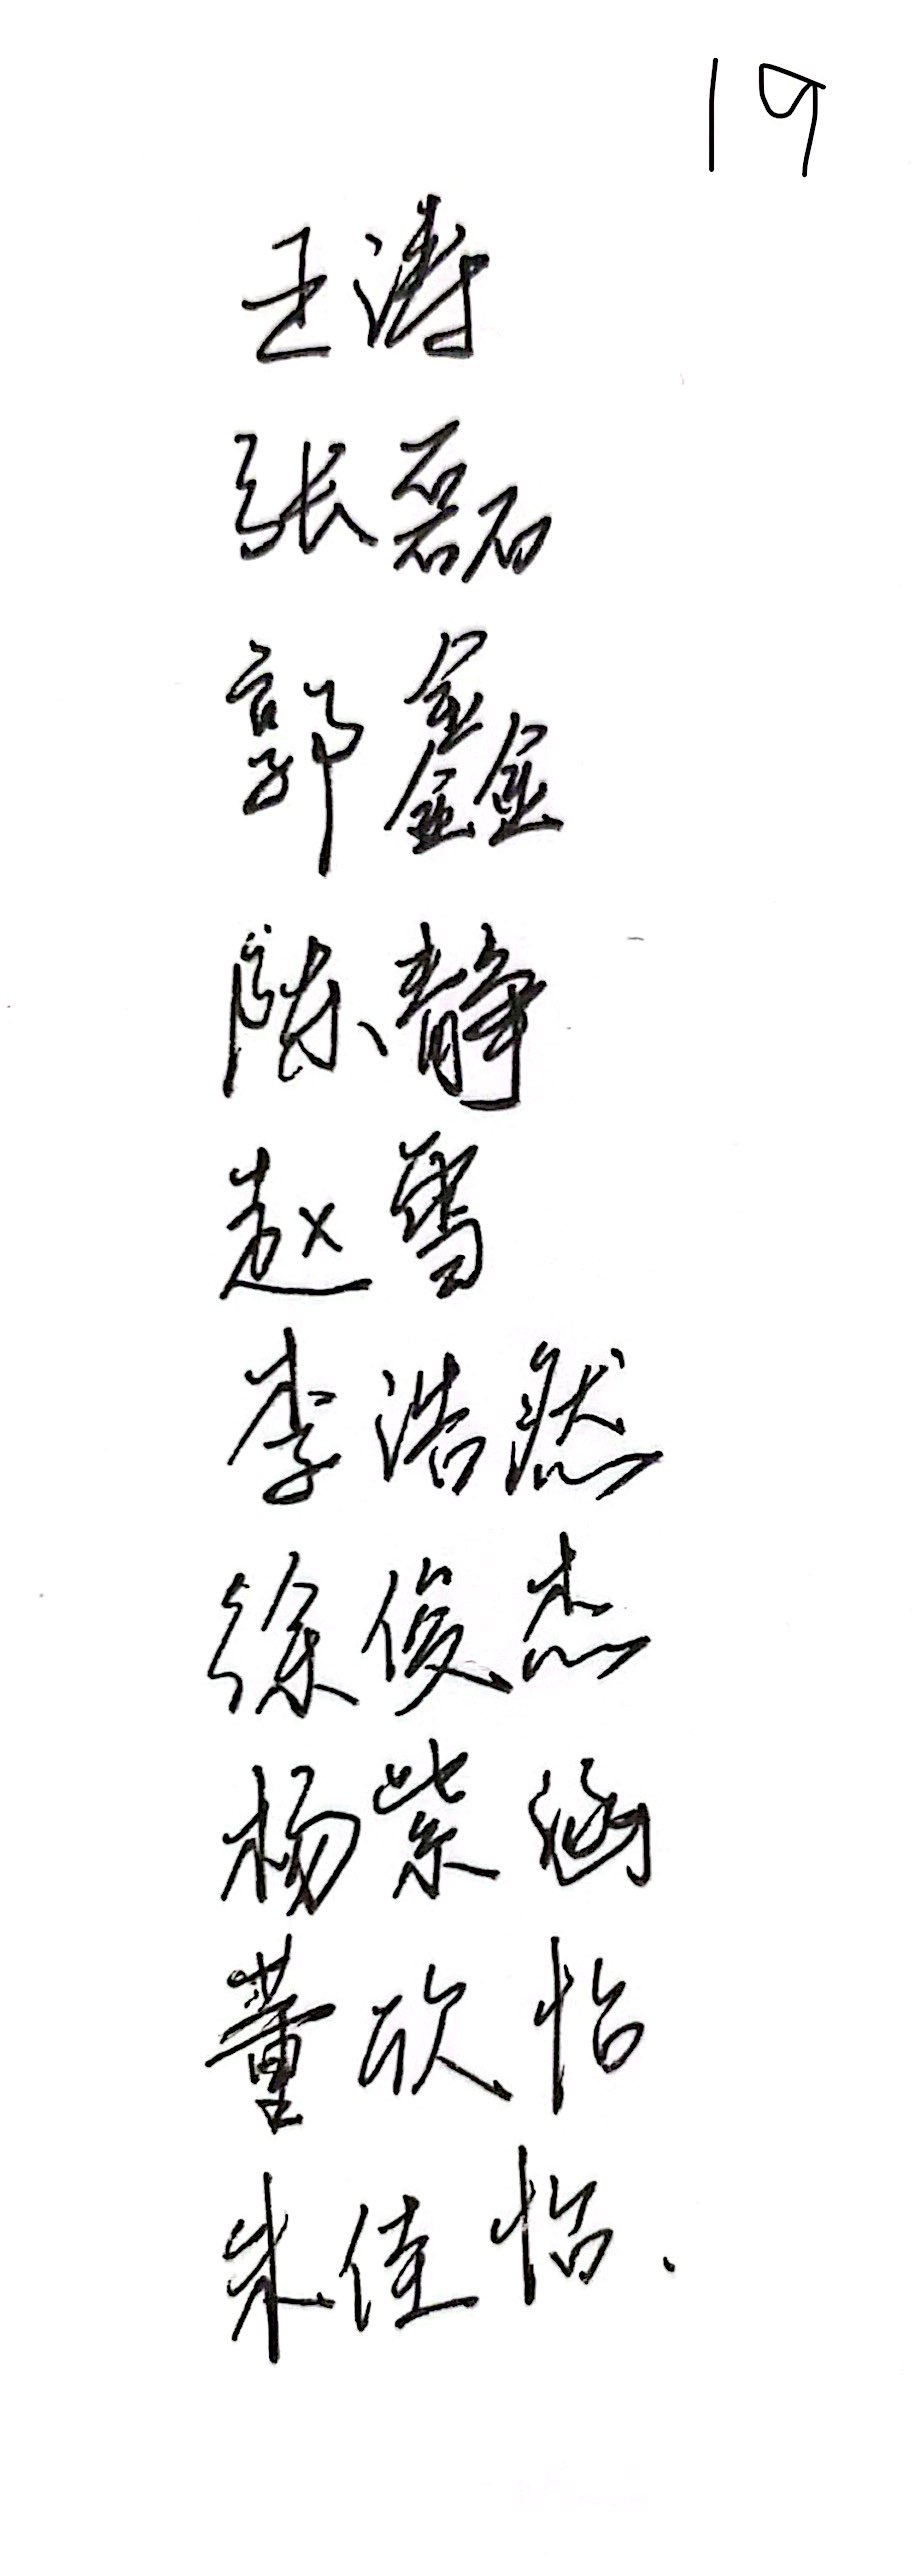 19
王涛
张磊
郭鑫
陈静
赵雪
李浩然
徐俊杰
杨紫涵
董欣怡
朱佳怡.